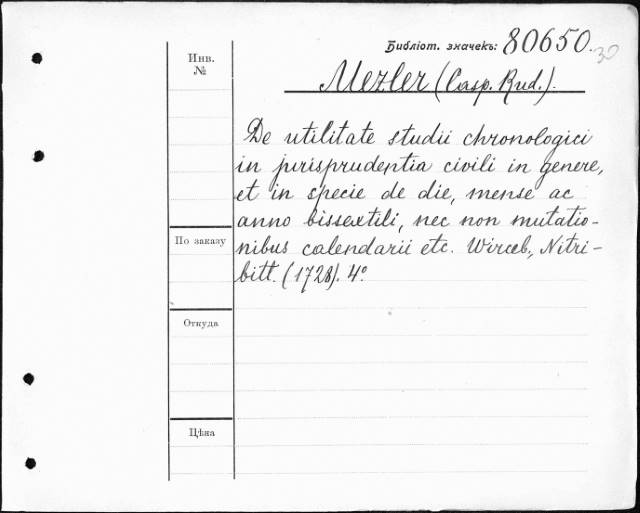 Библіот. значекъ: 80650.
30
Инв.
№
Mezler (Casp. Rud.).
De utilitate studii chronologici
in jurisprudentia civili in genere,
et in specie de die, mense ac
anno bissextili, nec non mutatio-
nibus calendarii etc. Wirceb., Nitri-
bitt. (1728). 4º.
По заказу
Откуда
Цѣна